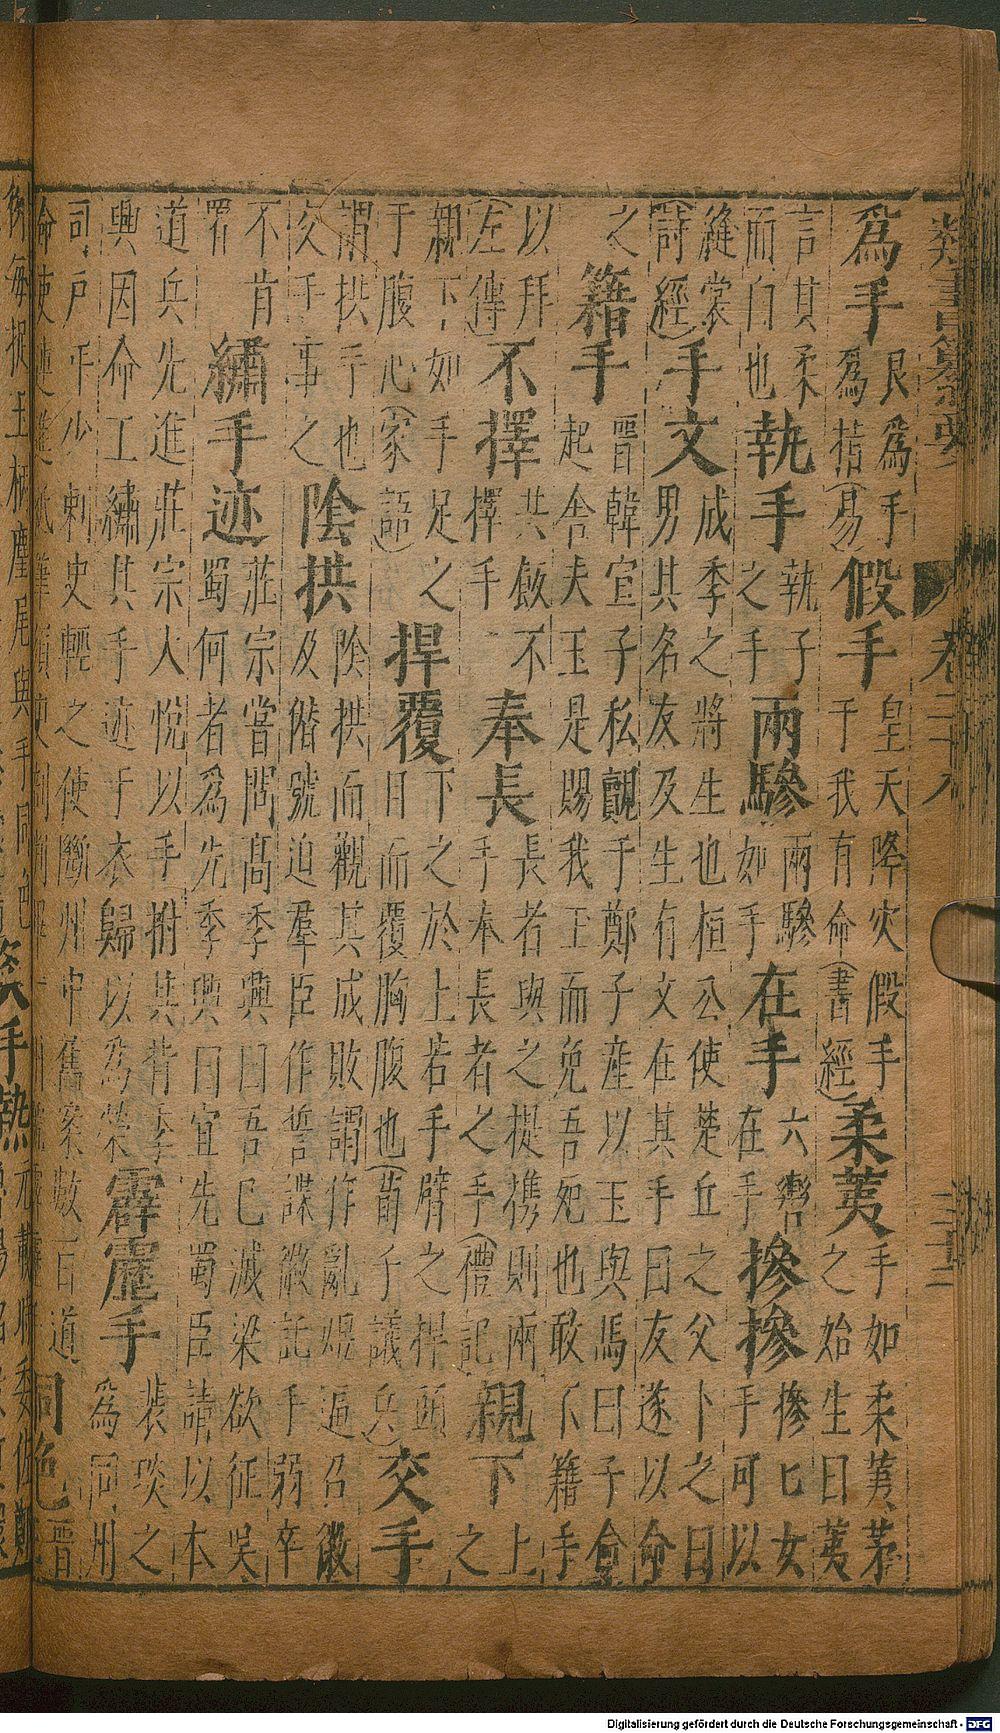 爲手 艮爲手
爲指(易) 假手 皇天降灾假手
于我有命(書經) 柔荑 手如柔荑茅
之始生曰荑
言其柔
而白也 執手 執子
之手 兩驂 兩驂
如手 在手 六轡
在手 摻摻 摻摻女
手可以
縫裳
(詩經) 手文 成季之將生也桓公使楚丘之父卜之曰
男其名友及生有文在其手曰友遂以命
之 籍手 晋韓宣子私覿于鄭子產以玉與馬曰子命
起舍夫玉是賜我玉而免吾死也敢不籍手
以拜
(左傳) 不擇 共飯不
擇手 奉長 長者與之提携則兩
手奉長者之手(禮記) 親下 上
之
親下如手足之
于腹心(家語) 捍覆 下之於上若手臂之捍頭
目而覆胸腹也(荀子議兵) 交手
謂拱手也
交手事之 陰拱 陰拱而觀其成敗謂作亂
及僭號迫羣臣作誓謀敵託手弱卒
不肯
罷 繡手迹 莊宗嘗問高季興曰吾已滅梁欲征吳
蜀何者爲先季興曰宜先蜀臣請以本
道兵先進莊宗大悅以手拊其背季
興因命工繡其手迹于衣歸以爲榮 霹靂手 裴琰之
爲同州
司戶年少刺史輕之使斷州中舊案數百道
同色 晋
類書纂要 卷二十八
Digitalisierung gefördert durch die Deutsche Forschungsgemeinschaft - DFG